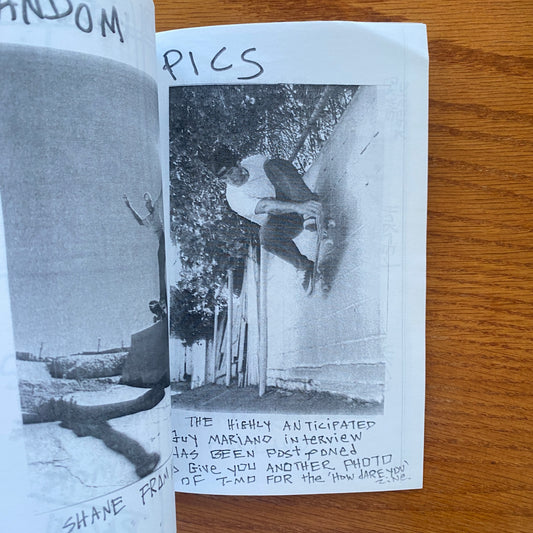 ANDOM
PICS
THE HIGHLY ANTICIPATED
GUY MARIANO INTERVIEW
HAS BEEN POSTPONED
O GIVE YOU ANOTHER PHOTO
OF T-MO FOR the 'HOW dARE YOU'
ZiNe.
SHANE FROM